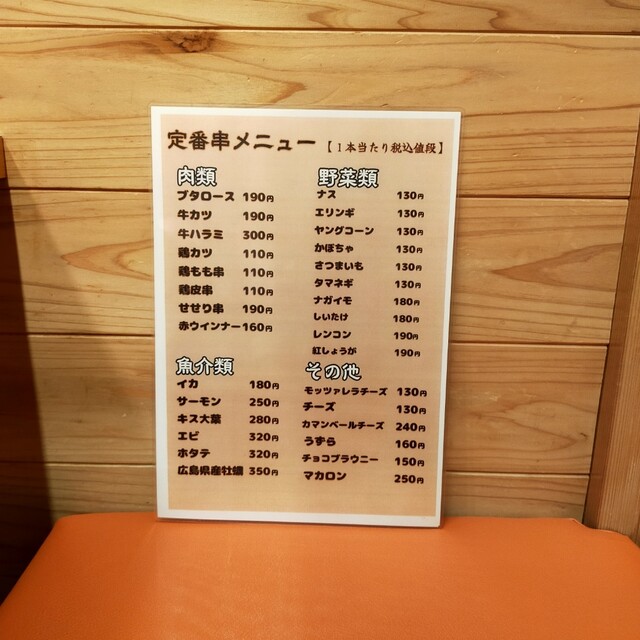 定番串メニュー 【1本当たり税込値段】
肉類
ブタロース 190円
牛カツ 190円
牛ハラミ 300円
鶏カツ 110円
鶏もも串 110円
鶏皮串 110円
せせり串 190円
赤ウインナー 160円
魚介類
イカ 180円
サーモン 250円
キス大葉 280円
エビ 320円
ホタテ 320円
広島県産牡蠣 350円
野菜類
ナス 130円
エリンギ 130円
ヤングコーン 130円
かぼちゃ 130円
さつまいも 130円
タマネギ 130円
ナガイモ 180円
しいたけ 180円
レンコン 190円
紅しょうが 190円
その他
モッツァレラチーズ 130円
チーズ 130円
カマンベールチーズ 240円
うずら 160円
チョコブラウニー 150円
マカロン 250円